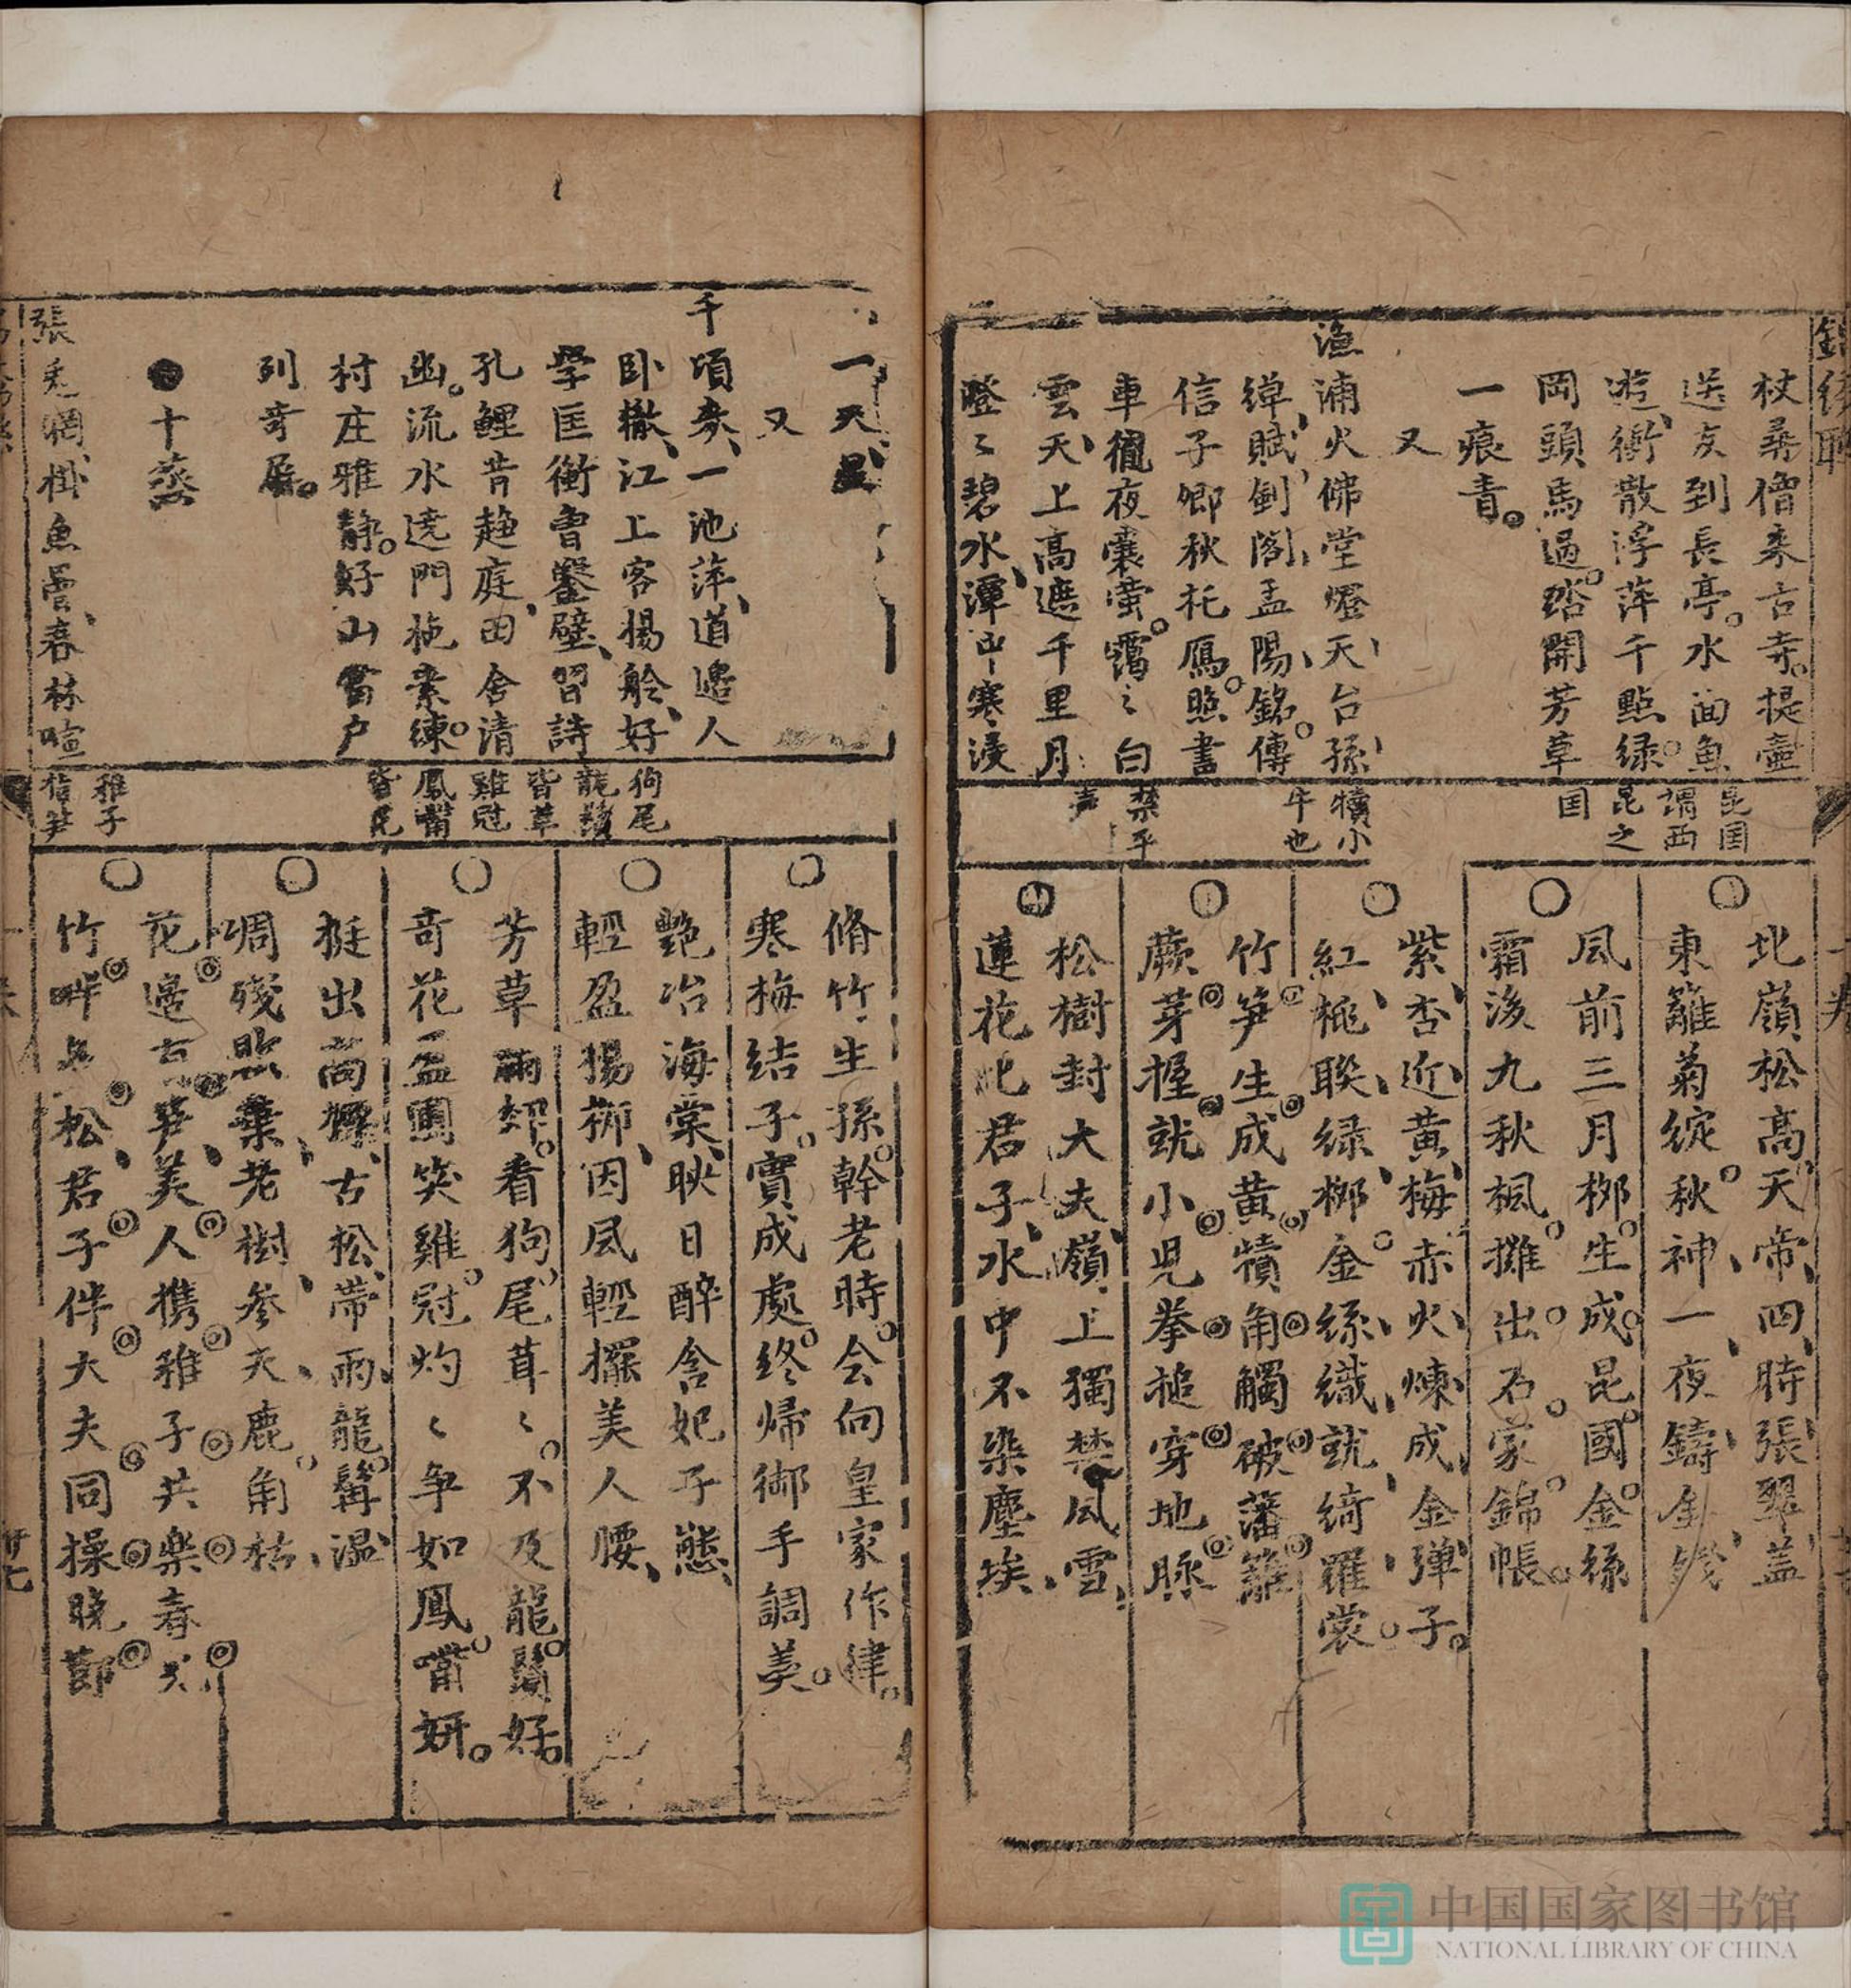 杖尋僧來古寺提壷
送友到長亭水面魚
遊衝散浮萍千點緑
岡頭馬過踏開芳草
一痕青
又
漁浦火佛堂燈天台孫
綽賦劍閣孟陽銘傳
信子卿秋托鴈照書
車胤夜囊螢靄〻白
雲天上高遮千里月
澄〻碧水潭中寒浸
昆国
謂西
昆之
国
犢小
牛也
禁平
声
北嶺松高天帝四時張翠蓋
東籬菊綻秋神一夜鑄金錢
風前三月栁生成昆國金絲
霜後九秋楓攤出石家錦帳
紫杏近黄梅赤火煉成金弹子
紅桃聯緑栁金絲織就綺羅裳
竹笋生成黄犢角觸破藩籬
蕨芽握就小児拳槌穿地脉
松樹封大夫嶺上獨禁風雪
蓮花比君子水中不染塵埃
一天星
又
千頃麥一池萍道邉人
卧轍江上客揚舲好
学匡衡曾鑿壁習詩
孔鯉昔趋庭田舍清
幽流水遶門拖素練
村庄雅静好山當户
列奇屏
十蒸
張兎網掛魚罾春林喧
狗尾
龍鬚
皆草
雞冠
鳳嘴
皆花
稚子
指笋
脩竹生孫幹老時会向皇家作律
寒梅結子實成處终歸御手調羹
艷冶海棠映日醉含妃子態
輕盈揚栁因風輕擺美人腰
芳草雨郊看狗尾茸〻不及龍鬚好
奇花盈圃笑雞冠灼〻争如鳳嘴妍
挺出高標古松帶雨龍髯濕
凋殘敗葉老樹參天鹿角枯
花邉有笋美人携稚子共樂春光
竹畔無松君子伴大夫同操晚節
中国国家图书馆
NATIONAL LIBRARY OF CHINA